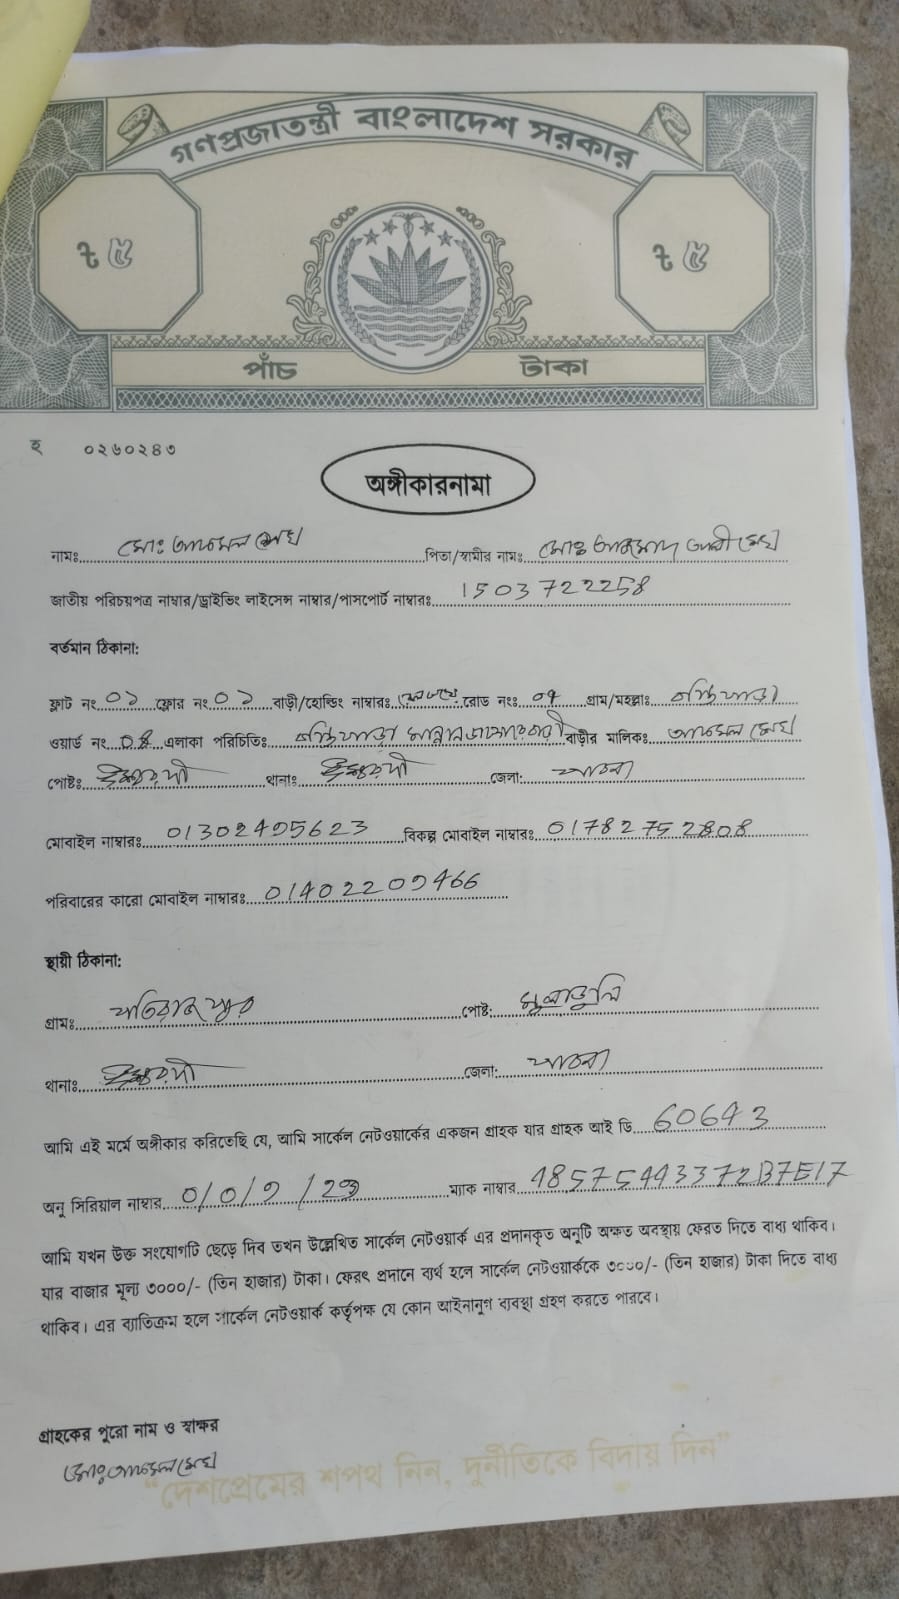 গণপ্রজাতন্ত্রী বাংলাদেশ সরকার
৳ ৫ ৳ ৫
পাঁচ টাকা
হ ০২৬০২৪৩
অঙ্গীকারনামা
নামঃ মোঃ পিতা/স্বামীর নামঃ মোঃ আলী
জাতীয় পরিচয়পত্র নাম্বার/ড্রাইভিং লাইসেন্স নাম্বার/পাসপোর্ট নাম্বারঃ 1503722258
বর্তমান ঠিকানা:
ফ্লাট নং ০১ ফ্লোর নং ০১ বাড়ী/হোল্ডিং নাম্বারঃ রোড নংঃ ০৭ গ্রাম/মহল্লাঃ
ওয়ার্ড নং 08 এলাকা পরিচিতিঃ বাড়ীর মালিকঃ
পোষ্টঃ ঈশ্বরদী থানাঃ ঈশ্বরদী জেলা: পাবনা
মোবাইল নাম্বারঃ 01302495623 বিকল্প মোবাইল নাম্বারঃ 01782752808
পরিবারের কারো মোবাইল নাম্বারঃ 01402209466
স্থায়ী ঠিকানা:
গ্রামঃ পতিরাজপুর পোষ্ট: মুলাডুলি
থানাঃ ঈশ্বরদী জেলা: পাবনা
আমি এই মর্মে অঙ্গীকার করিতেছি যে, আমি সার্কেল নেটওয়ার্কের একজন গ্রাহক যার গ্রাহক আই ডি 60643
অনু সিরিয়াল নাম্বার ম্যাক নাম্বার 48575443372B7E17
আমি যখন উক্ত সংযোগটি ছেড়ে দিব তখন উল্লেখিত সার্কেল নেটওয়ার্ক এর প্রদানকৃত অনুটি অক্ষত অবস্থায় ফেরত দিতে বাধ্য থাকিব।
যার বাজার মূল্য ৩০০০/- (তিন হাজার) টাকা। ফেরৎ প্রদানে ব্যর্থ হলে সার্কেল নেটওয়ার্ককে ৩০০০/- (তিন হাজার) টাকা দিতে বাধ্য
থাকিব। এর ব্যাতিক্রম হলে সার্কেল নেটওয়ার্ক কর্তৃপক্ষ যে কোন আইনানুগ ব্যবস্থা গ্রহণ করতে পারবে।
গ্রাহকের পুরো নাম ও স্বাক্ষর
মোঃ
“দেশপ্রেমের শপথ নিন, দুর্নীতিকে বিদায় দিন”